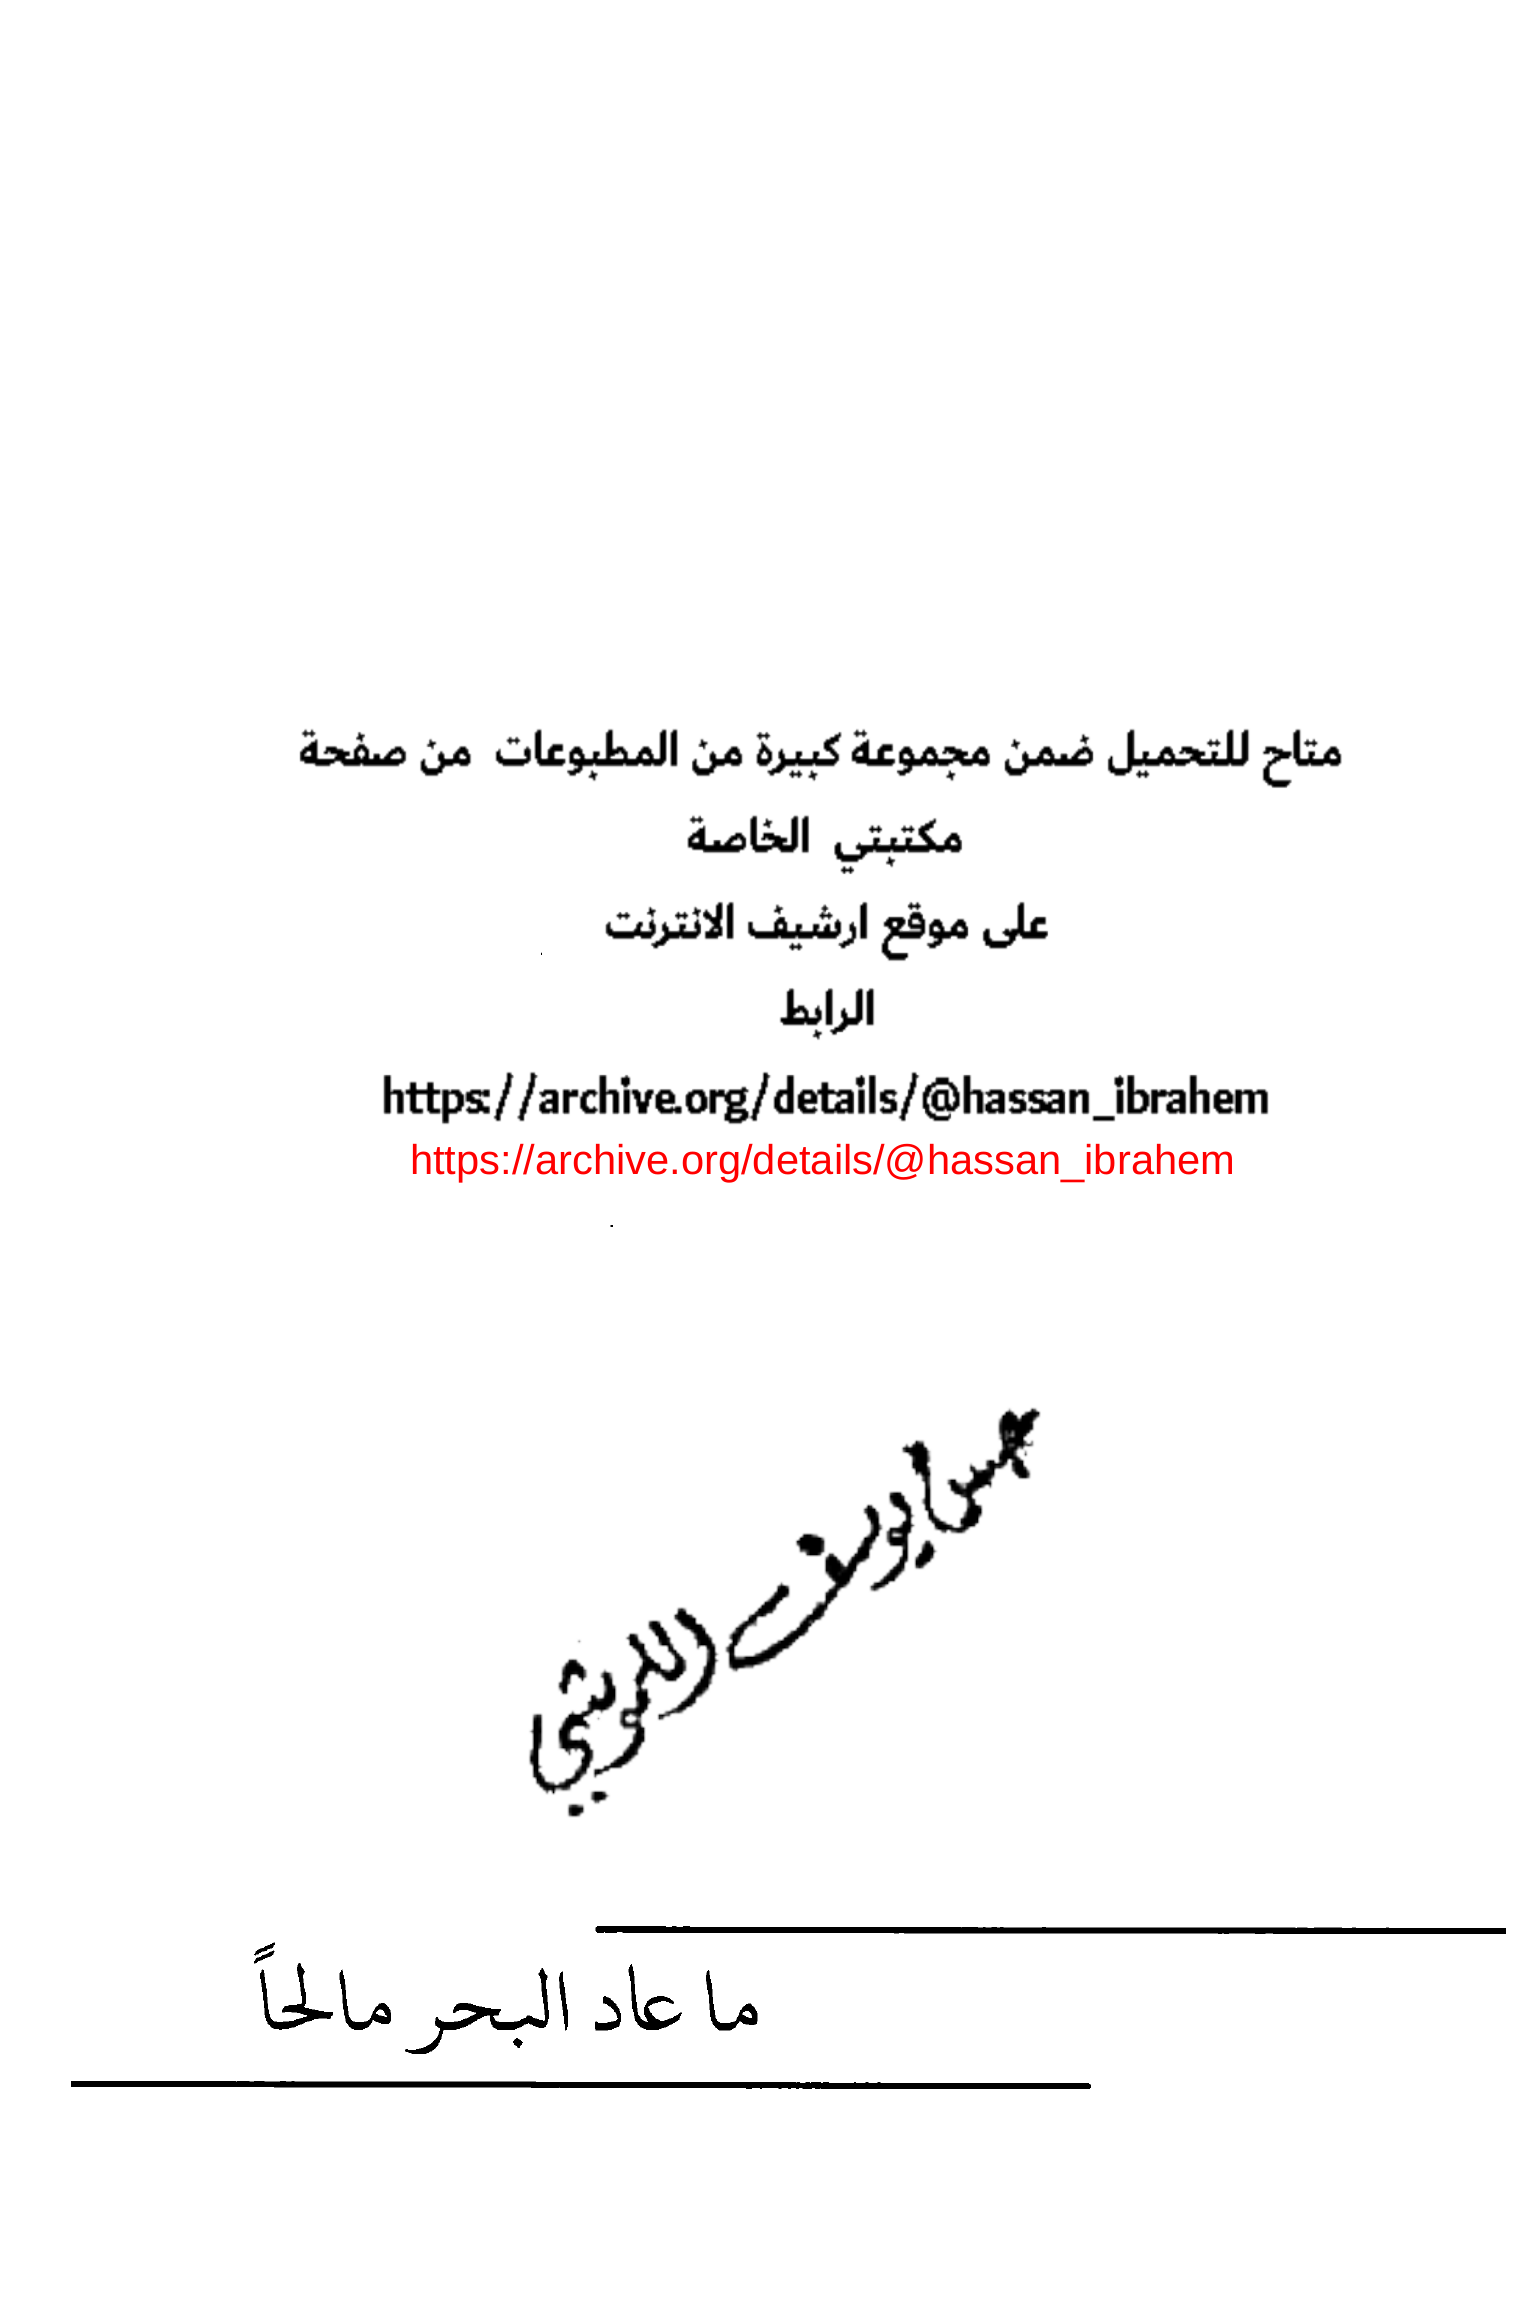 متاح للتحميل ضمن مجموعة كبيرة من المطبوعات من صفحة
مكتبتي الخاصة
على موقع ارشيف الانترنت
الرابط
https://archive.org/details/@hassan_ibrahem
https://archive.org/details/@hassan_ibrahem
يوسف
ما عاد البحر مالحاً